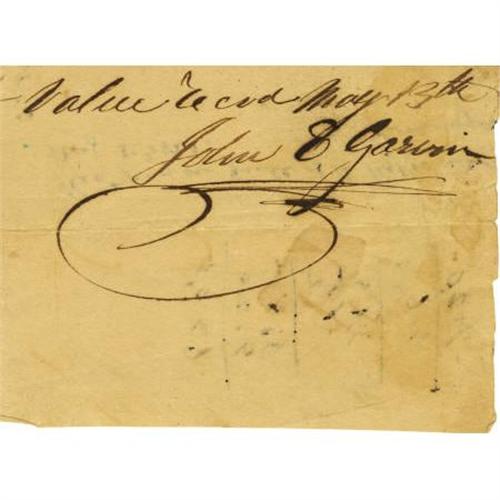 Value Recd May 13th
John E Garvin